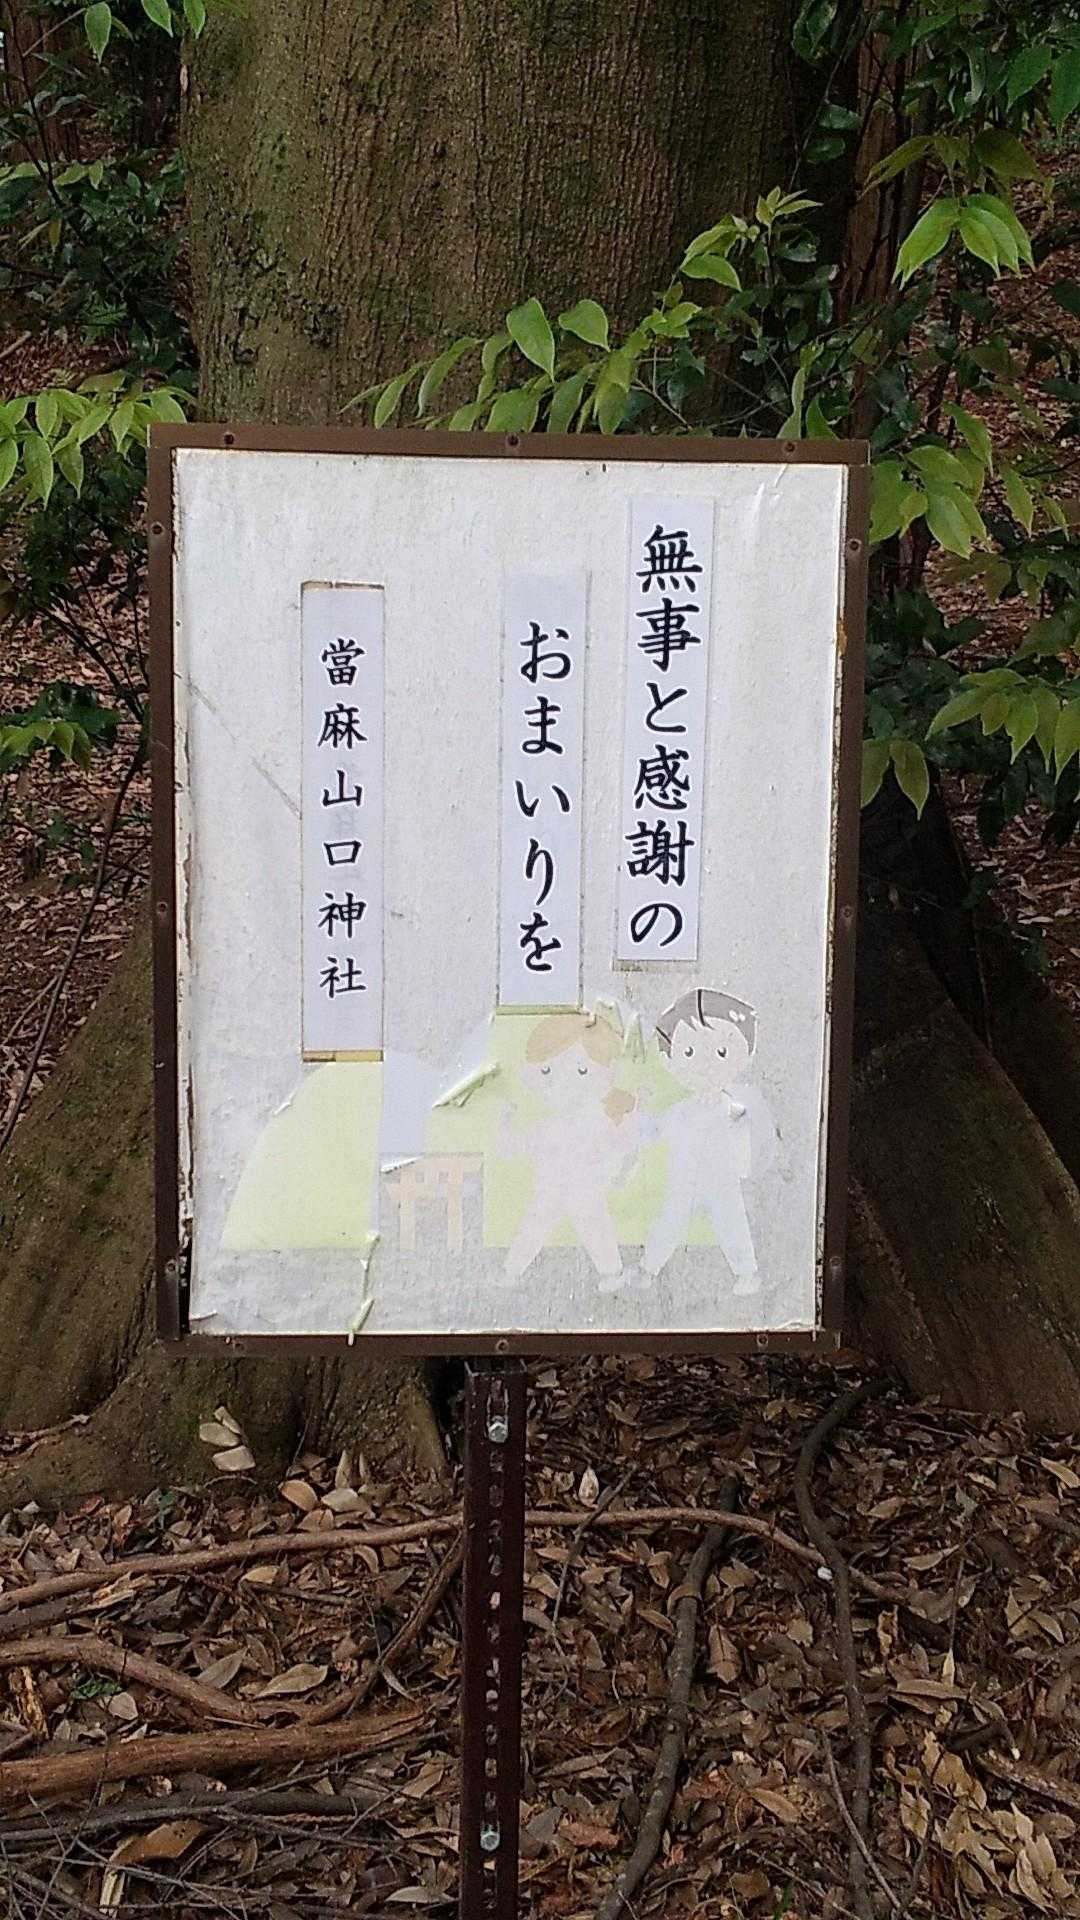 無事と感謝の
おまいりを
當麻山口神社